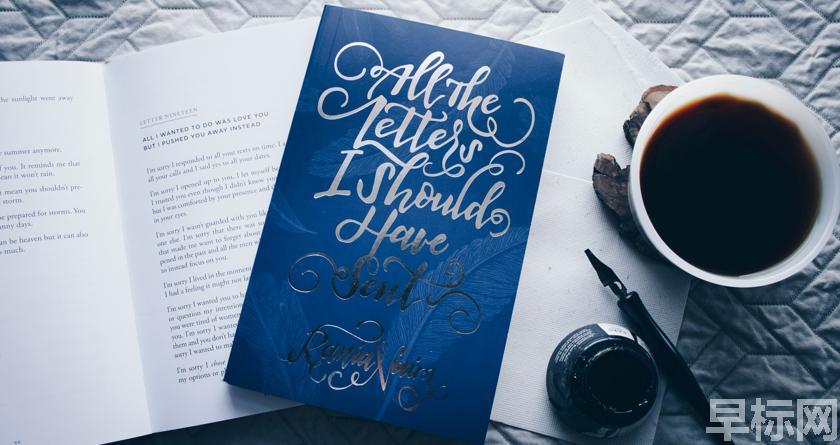 he sunlight went away
e summer anymore.
f you. It reminds me that
ean it won't rain.
t mean you shouldn't pre-
storm.
be prepared for storms. You
nny days.
an be heaven but it can also
much.
64
LETTER NINETEEN
ALL I WANTED TO DO WAS LOVE YOU
BUT I PUSHED YOU AWAY INSTEAD
I'm sorry I responded to all your texts on time. I
all your calls and I said yes to all your dates.
I'm sorry I opened up to you, I let myself
I trusted you even though I didn't know
but I was comforted by your presence and
in your eyes.
I'm sorry I wasn't guarded with you
one else. I'm sorry that there was
that made me want to forget about
pened in the past and all the men
to instead focus on you.
I'm sorry I lived in the moment
I had a feeling it might not
I'm sorry I wanted you to
or question my intention
you were tired of women
them and you don't
sorry I wanted to
I'm sorry I
my options or
All the
Letters
I Should
Have
Sent
Rania Naim
早标网